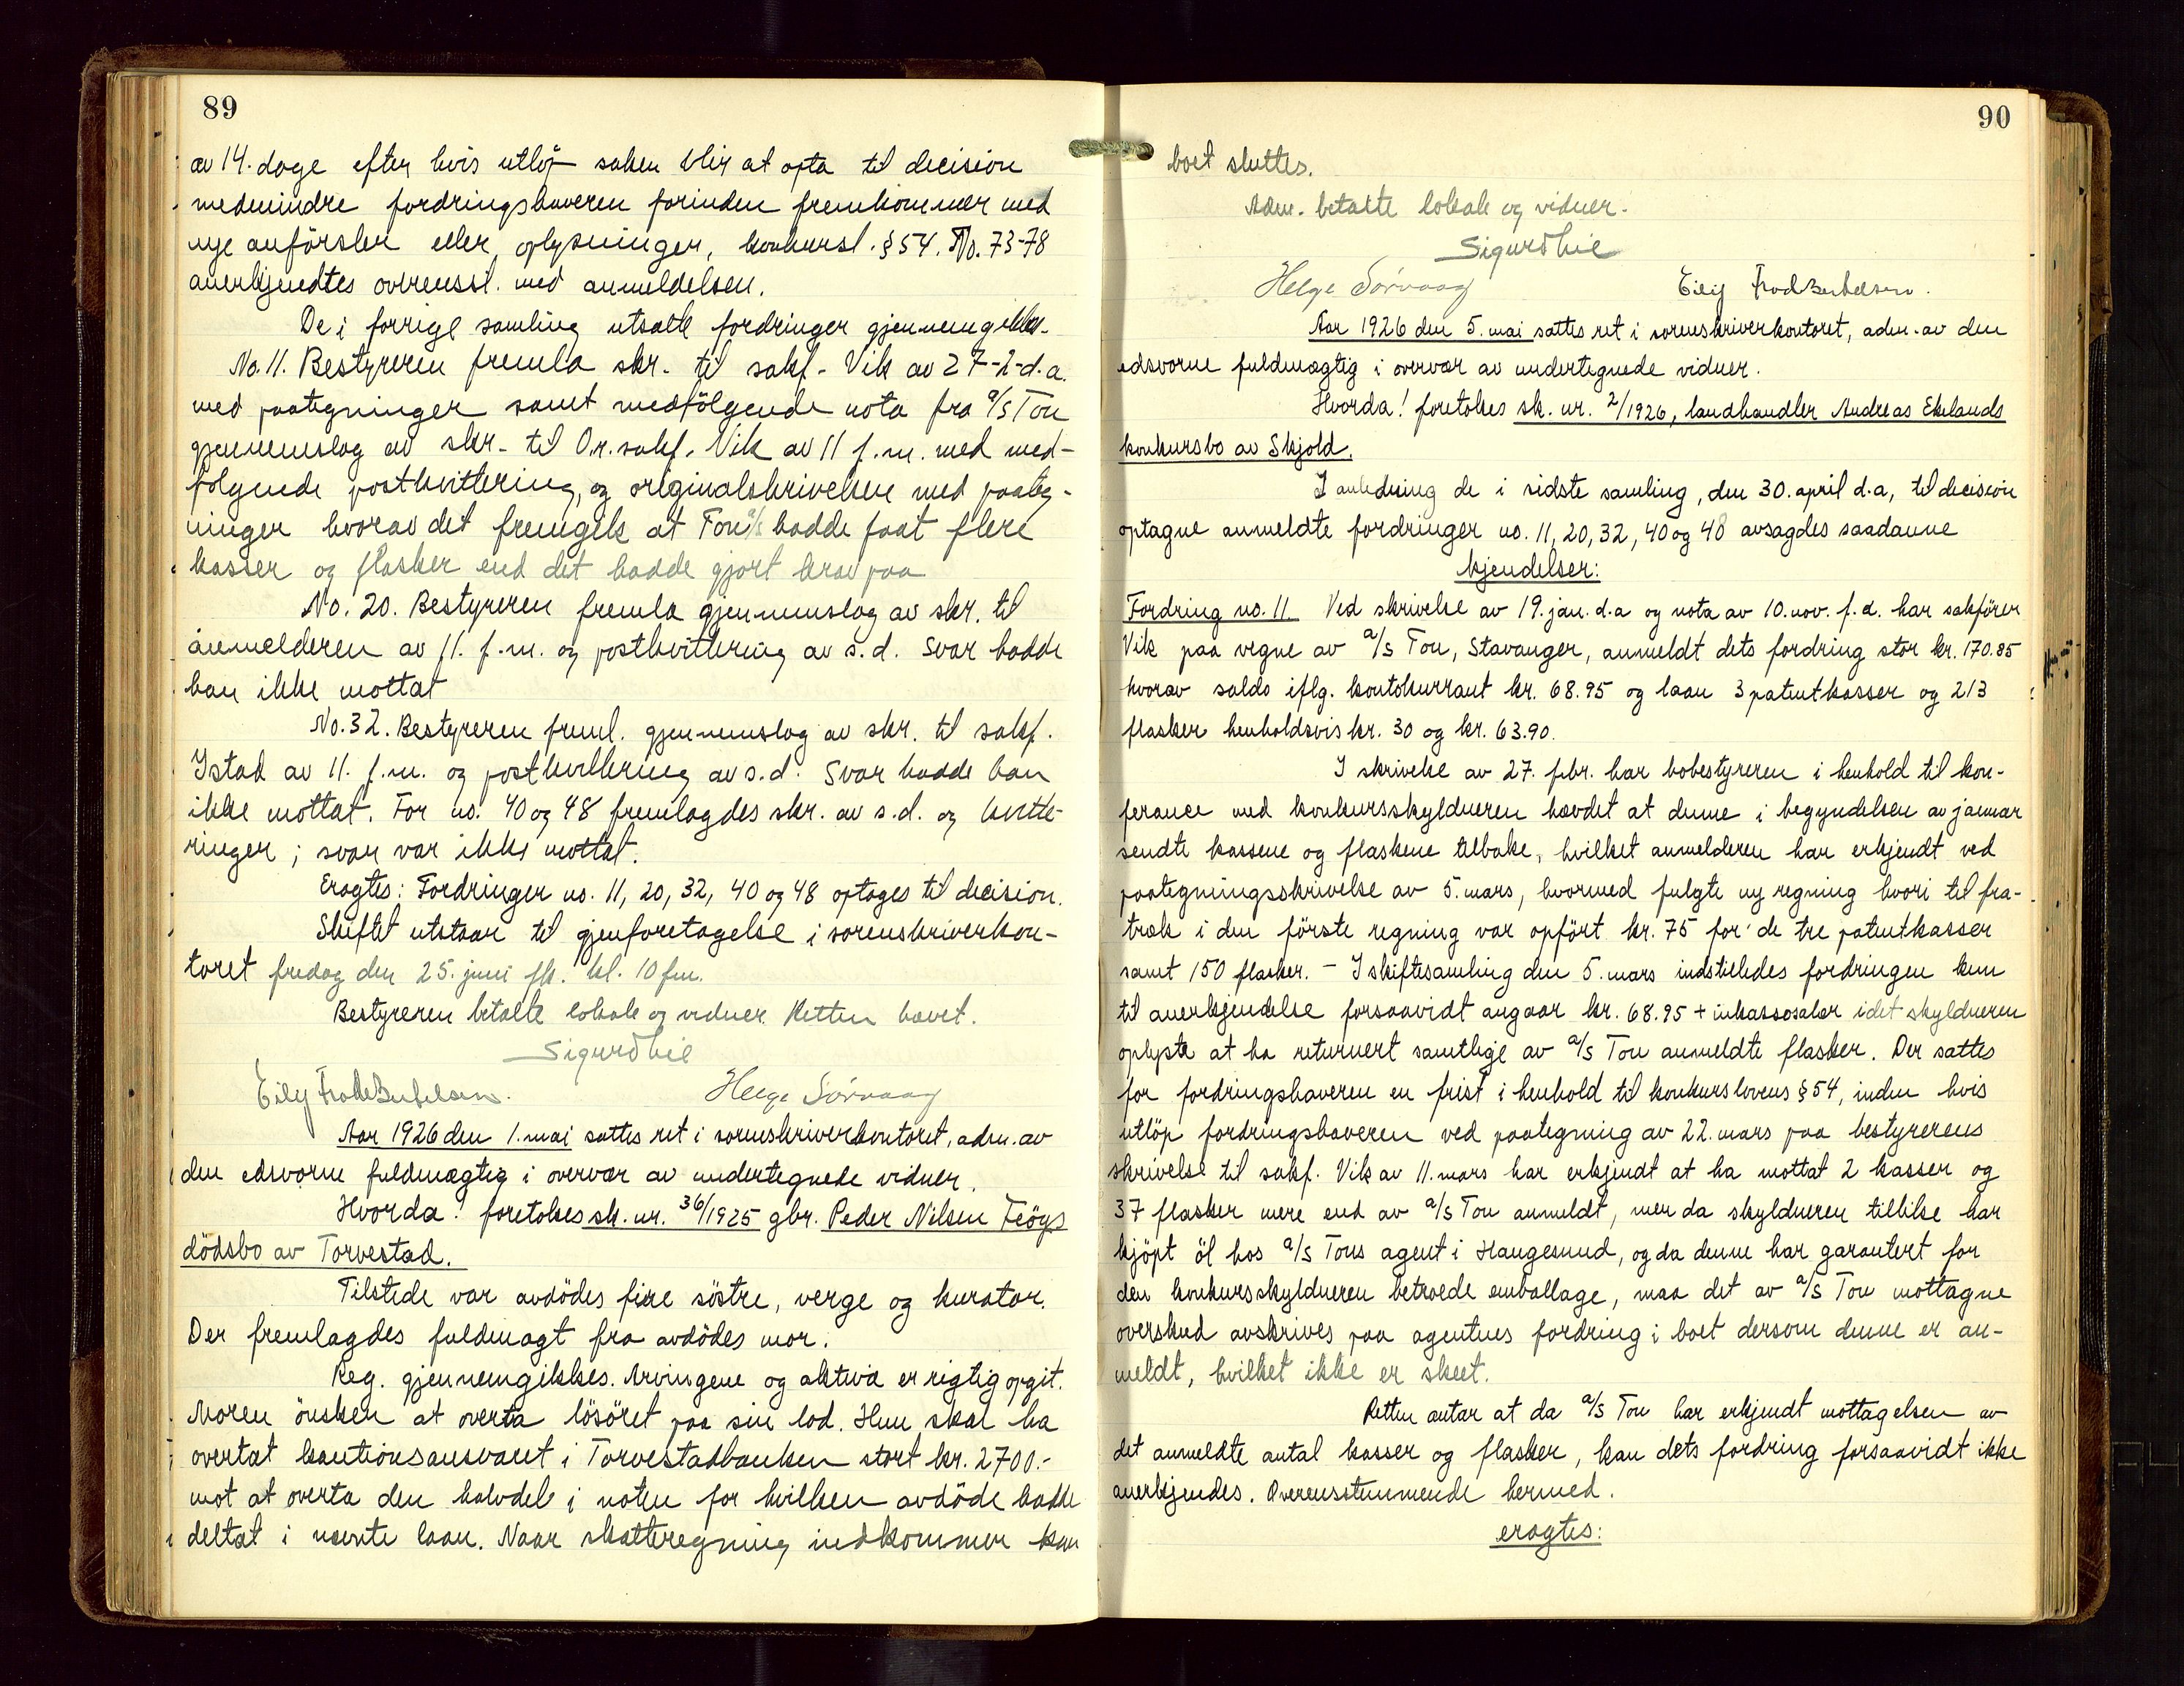 89
av 14. dage efter hvis utløp saken blir at opta til decision
medmindre fordringshaveren forinden fremkommer med
nye anførsler eller oplysninger, konkursl. § 54. No. 73-78
anerkjendtes overensst. med anmeldelsen.
De i forrige samling utsatte fordringer gjennemgikkes.
No. 11. Bestyreren fremla skr. til sakf. Vik av 27-2-d.a.
med paategninger samt medfølgende nota fra a/s Tou
gjennemslag av skr. til O.r.sakf. Vik av 11 f.m. med med-
følgende postkvittering, og originalskrivelsen med paateg-
ninger hvorav det fremgik at Tou a/s hadde faat flere
kasser og flasker end det hadde gjort krav paa
No. 20. Bestyreren fremla gjennemslag av skr. til
anmelderen av 11. f.m. og postkvittering av s.d. Svar hadde
han ikke mottat
No. 32. Bestyreren freml. gjennemslag av skr. til sakf.
Ystad av 11. f.m. og postkvittering av s.d. Svar hadde han
ikke mottat. For no. 40 og 48 fremlagdes skr. av s.d. og kvitte-
ringer; svar var ikke mottat.
Eragtes: Fordringer no. 11, 20, 32, 40 og 48 optages til decision.
Skiftet utstaar til gjenforetagelse i sorenskriverkon-
toret fredag den 25. juni fk. kl. 10 fm.
Bestyreren betalte lokale og vidner. Retten hævet.
Sigurd Lie
Eily Frode Bertelsen. Helge Sörvaag
Aar 1926 den 1. mai sattes ret i sorenskriverkontoret, adm. av
den edsvorne fuldmægtig i overvær av undertegnede vidner.
Hvorda! foretokes sk. nr. 36/1925 gbr. Peder Nilsen Feöys
dödsbo av Torvestad.
Tilstede var avdödes fire söstre, verge og kurator.
Der fremlagdes fuldmagt fra avdödes mor.
Reg. gjennemgikkes. Arvingene og aktiva er rigtig opgit.
Moren ønsker at overta lösöret paa sin lod. Hun skal ha
overtat kautionsansvaret i Torvestadbanken stort kr. 2700.-
mot at overta den halvdel i noten for hvilken avdöde hadde
deltat i nævnte laan. Naar skatteregning indkommer kan
90
boet sluttes.
Adm. betalte lokale og vidner.
Sigurd Lie
Helge Sörvaag Eily Frode Bertelsen.
Aar 1926 den 5. mai sattes ret i sorenskriverkontoret, adm. av den
edsvorne fuldmægtig i overvær av undertegnede vidner.
Hvorda! foretokes sk. nr. 2/1926, landhandler Andreas Ekelands
konkursbo av Skjold.
I anledning de i sidste samling, den 30. april d.a, til decision
optagne anmeldte fordringer no. 11, 20, 32, 40 og 48 avsagdes saadanne
kjendelser:
Fordring no. 11. Ved skrivelse av 19. jan. d.a og nota av 10. nov. f.a. har sakförer
Vik paa vegne av a/s Tou, Stavanger, anmeldt dets fordring stor kr. 170.85
hvorav saldo iflg. kontokurrant kr. 68.95 og laan 3 patentkasser og 213
flasker henholdsvis kr. 30 og kr. 63.90.
I skrivelse av 27. febr. har bobestyreren i henhold til kon-
ferance med konkursskyldneren hævdet at denne i begyndelsen av januar
sendte kassene og flaskene tilbake, hvilket anmelderen har erkjendt ved
paategningsskrivelse av 5. mars, hvormed fulgte ny regning hvori til fra-
træk i den förste regning var opfört kr. 75 for de tre patentkasser
samt 150 flasker. - I skiftesamling den 5. mars indstilledes fordringen kun
til anerkjendelse forsaavidt angaar kr. 68.95 + inkassosalær idet skyldneren
oplyste at ha returnert samtlige av a/s Tou anmeldte flasker. Der sattes
for fordringshaveren en frist i henhold til konkurslovens § 54, inden hvis
utlöp fordringshaveren ved paategning av 22. mars paa bestyrerens
skrivelse til sakf. Vik av 11. mars har erkjendt at ha mottat 2 kasser og
37 flasker mere end av a/s Tou anmeldt, men da skyldneren tillike har
kjöpt öl hos a/s Tous agent i Haugesund, og da denne har garantert for
den konkursskyldneren betroede emballage, maa det av a/s Tou mottagne
overskud avskrives paa agentens fordring i boet dersom denne er an-
meldt, hvilket ikke er skeet.
Retten antar at da a/s Tou har erkjendt mottagelsen av
det anmeldte antal kasser og flasker, kan dets fordring forsaavidt ikke
anerkjendes. Overensstemmende hermed.
eragtes: